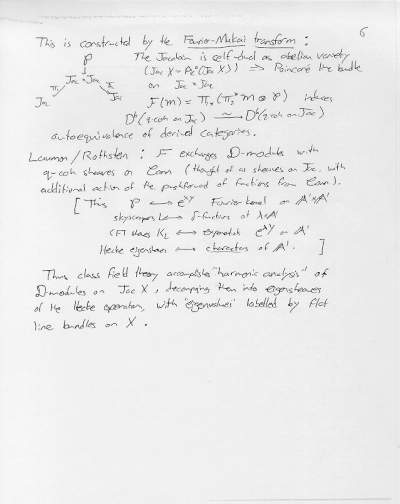 6
This is constructed by the Fourier-Mukai transform :
P The Jacobian is self-dual as abelian variety
(Jac X ≃ Pic⁰(Jac X)) ⇒ Poincaré line bundle
Jac × Jac on Jac × Jac
π₁ π₂
Jac Jac F(M) = π₁*(π₂*M ⊗ P) induces
Dᵇ(q-coh on Jac) ⥲ Dᵇ(q-coh on Jac)
autoequivalence of derived categories.
Laumon/Rothstein : F exchanges D-modules with
q-coh sheaves on Conn (thought of as sheaves on Jac, with
additional action of the pushforward of functions from Conn).
[ This P ⟷ eˣʸ Fourier kernel on A¹×A¹
skyscrapers ⟷ δ-functions at λ∈A¹
CFT sheaves K_L ⟷ exponentials eˣʸ on A¹
Hecke eigensheaves ⟷ characters of A¹. ]
Thus class field theory accomplishes "harmonic analysis" of
D-modules on Jac X, decomposing them into eigensheaves
of the Hecke operators, with "eigenvalues" labelled by flat
line bundles on X .